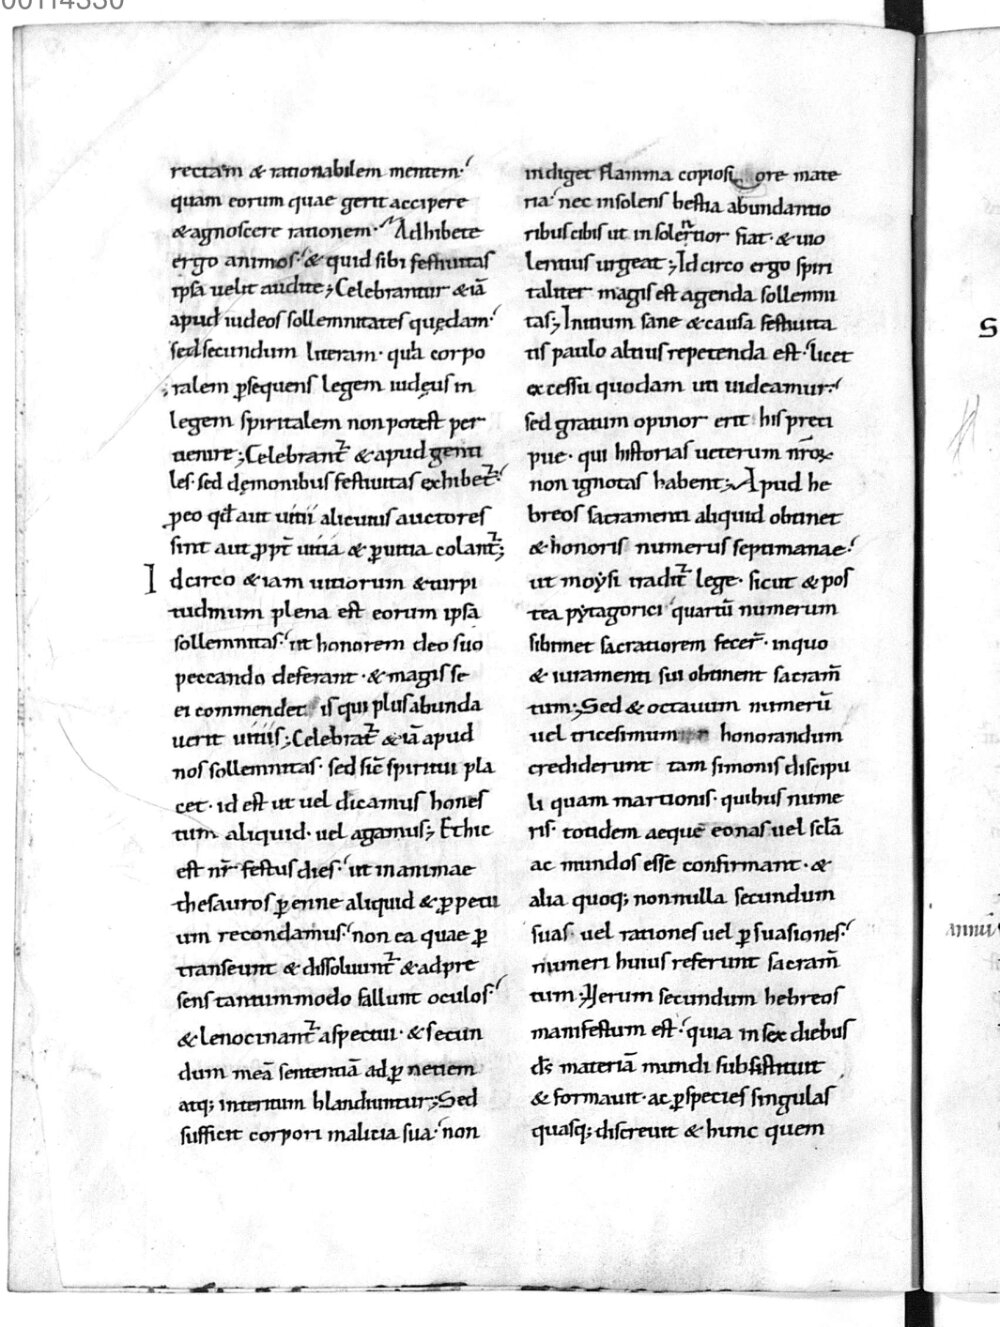 00114330
rectam & rationabilem mentem·
quam eorum quae gerit accipere
& agnoscere rationem· Adhibete
ergo animos· & quid sibi festiuitas
ipsa uelit audite; Celebrantur & iā
apud iudeos sollemnitates quędam·
sed secundum literam· quia corpo
ralem p̱sequens legem iudęus in
legem spiritalem non potest per
uenire; Celebrant̄ & apud genti
les· sed dęmonibus festiuitas exhibet̄·
p̱eo qđ aut uitii alicuius auctores
sint aut p̱pt̄ uitia & p̱ uitia colant̄;
Idcirco & iam uitiorum & turpi
tudinum plena est eorum ipsa
sollemnitas· ut honorem deo suo
peccando deferant· & magis se
ei commendet is qui plus abunda
uerit uitiis; Celebrat̄ & iā apud
nos sollemnitas· sed sic̄ spiritui pla
cet· id est ut uel dicamus hones
tum aliquid· uel agamus; & hic
est nr̄ festus dies· ut in animae
thesauros p̱enne aliquid & p̱petu
um recondamus· non ea quae p̱
transeunt & dissoluunt̄ & ad pre
sens tantummodo fallunt oculos·
& lenocinant̄ aspectui· & secun
dum meā sententiā ad p̱netiem
atq; interitum blandiuntur; Sed
sufficit corpori malitia sua· non
indiget flamma copiosiore mate
ria· nec insolens bestia abundantio
ribus cibis ut insolentior fiat· & uio
lentius urgeat; Idcirco ergo spiri
taliter magis est agenda sollemni
tas; Initium sane & causa festiuita
tis paulo altius repetenda est· licet
excessu quodam uti uideamur·
sed gratum opinor erit his preci
pue· qui historias ueterum nr̄oꝝ
non ignotas habent; Apud he
breos sacramenti aliquid obtinet
& honoris numerus septimanae·
ut moẏsi tradit̄ lege· sicut & pos
tea pẏtagorici quartū numerum
sibimet sacratiorem fecer̄· in quo
& iuramenti sui obtinent sacram̄
tum; Sed & octauum numerū
uel tricesimum honorandum
crediderunt tam simonis discipu
li quam martionis· quibus nume
ris· totidem aeque eonas uel sc̄la
ac mundos esse confirmant· &
alia quoq; nonnulla secundum
suas· uel rationes uel p̱suasiones·
numeri huius referunt sacram̄
tum; Verum secundum hebreos
manifestum est· quia in sex diebus
d̄s materiā mundi subsistituit
& formauit· ac p̱ species singulas
quasq; discreuit & hunc quem
S
annui